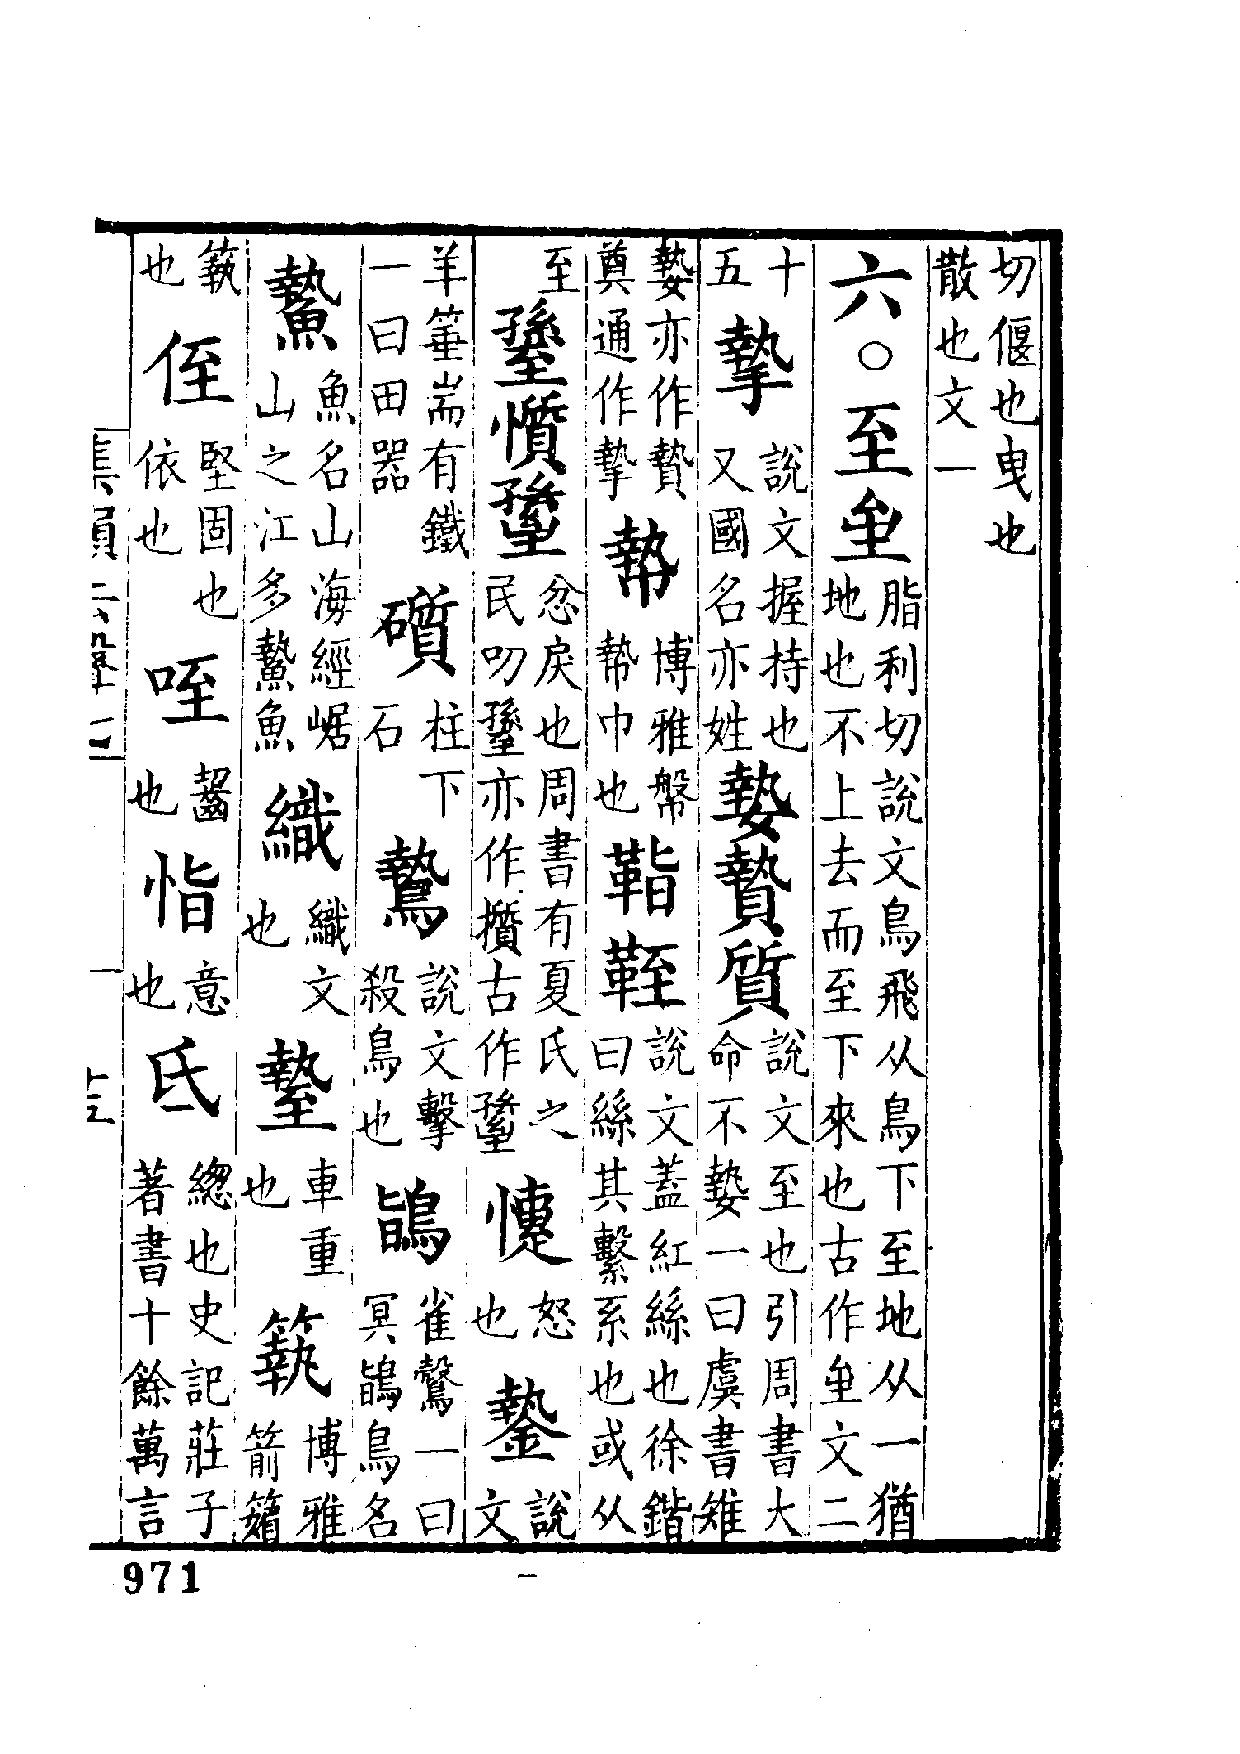 切偃也曳也
散也文一
六○至𡊆脂利切說文鳥飛从鳥下至地从一猶地也不上去而至下來也古作𡊆文二
十五摯說文握持也又國名亦姓㜼贄質說文至也引周書大命不㜼一曰虞書雉
㜼亦作贄奠通作摯博雅幋巾也說文蓋紅絲也徐鍇曰絲其繫系也或从
至懫忿戾也周書有夏氏之民叨亦作懫古作懥怒也䥍說文
羊箠耑有鐵一曰田器礩柱下石鷙說文擊殺鳥也鴲雀鷇一曰冥鴲鳥名
䲀魚名山海經崌山之江多䲀魚織織文也車重也博雅箭
也侄堅固也依也咥齧也恉意也氐總也史記莊子著書十餘萬言
集韻去聲七
十五
971